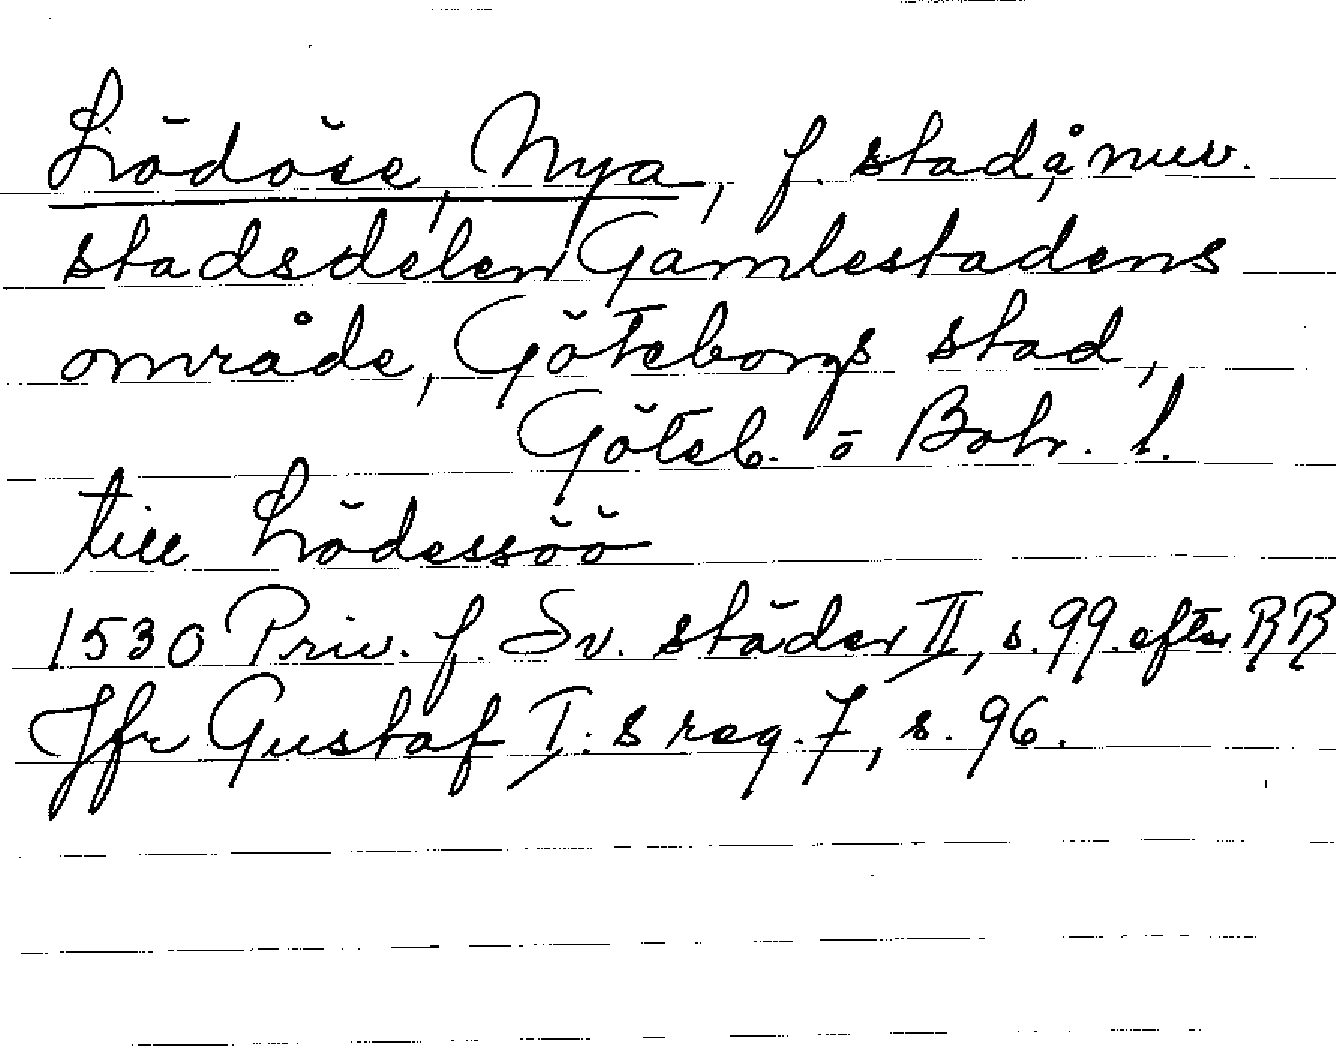 Lödöse, Nya, f. stad å nuv.
stadsdelen Gamlestadens
område, Göteborgs stad,
Göteb. o Boh. l.
till Lödessöö
1530 Priv. f. Sv. städer II, s. 99 efter RR
Jfr Gustaf I:s reg. 7, s. 96.